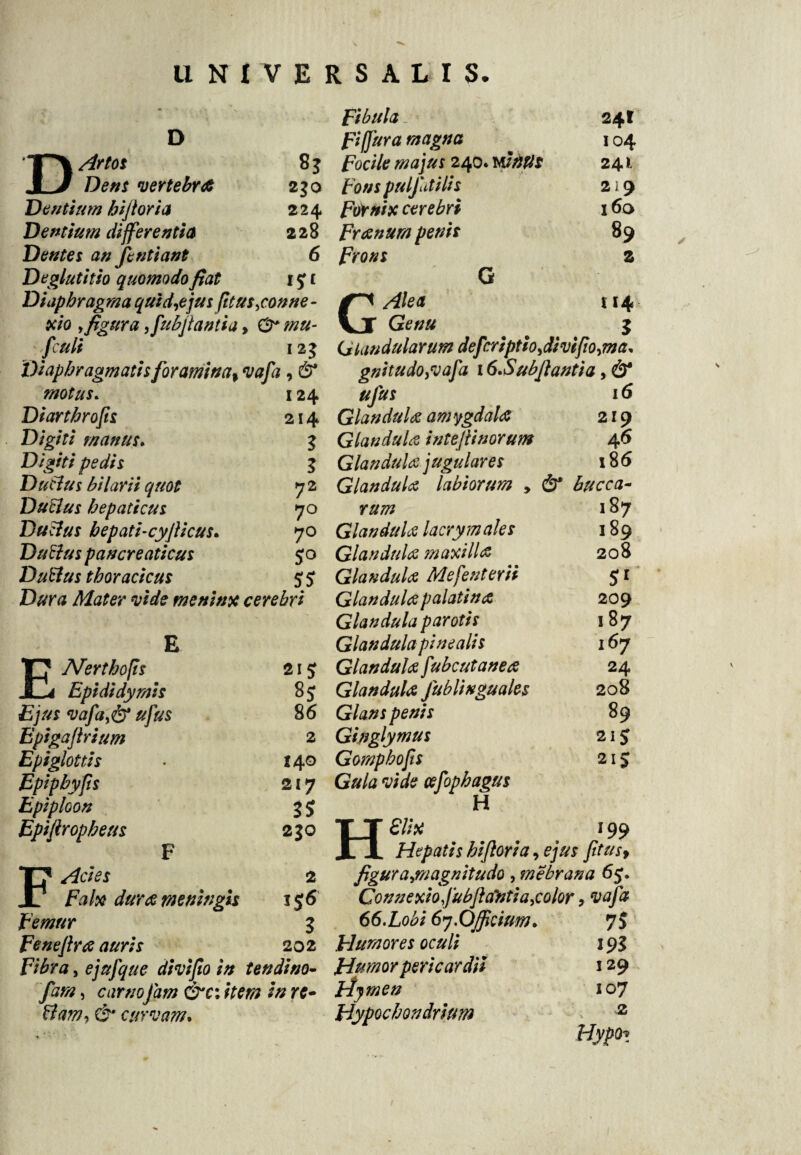 UNIVERSALIS.
D
DArtos 83
Dens vertebræ 230
Dentium hiſtoria 224
Dentium differentia 228
Dentes an ſentiant 6
Deglutitio quomodo fiat 151
Diaphragma quid,ejus ſitus,conne-
xio ,figura ,ſubſtantia , & mu-
ſculi 123
Diaphragmatis foramina, vaſa , &
motus. 124
Diarthroſis 214
Digiti manus. 3
Digiti pedis 3
Ductus bilarii quot 72
Ductus hepaticus 70
Ductus hepati-cyſticus. 70
Ductus pancreaticus 50
Ductus thoracicus 55
Dura Mater vide meninx cerebri
E
ENerthoſis 215
Epididymis 85
Ejus vaſa,& uſus 86
Epigaſtrium 2
Epiglottis 140
Epiphyſis 217
Epiploon 35
Epiſtropheus 230
F
FAcies 2
Falx duræ meningis 156
Femur 3
Feneſtræ auris 202
Fibra, ejuſque diviſio in tendino-
ſam, carnoſam &c: item in re-
ctam, & curvam.
Fibula 241
Fiſſura magna 104
Focile majus 240. minus 241
Fons pulſatilis 219
Fornix cerebri 160
Frænum penis 89
Frons 2
G
GAlea 114
Genu 3
Glandularum deſcriptio,diviſio,ma.
gnitudo,vaſa 16.Subſtantia, &
uſus 16
Glandulæ amygdalæ 219
Glandulæ inteſtinorum 46
Glandulæ jugulares 186
Glandulæ labiorum , & bucca-
rum 187
Glandulæ lacrymales 189
Glandulæ maxillæ 208
Glandulæ Meſenterii 51
Glandulæ palatinæ 209
Glandula parotis 187
Glandula pinealis 167
Glandulæ ſubcutaneæ 24
Glandulæ ſublinguales 208
Glans penis 89
Ginglymus 215
Gomphoſis 215
Gula vide œſophagus
H
HElix 199
Hepatis hiſtoria, ejus ſitus,
figura,magnitudo , mēbrana 65.
Connexio,ſubſtantia,color, vaſa
66.Lobi 67.Officium. 75
Humores oculi 193
Humor pericardii 129
Hymen 107
Hypochondrium 2
Hypo-